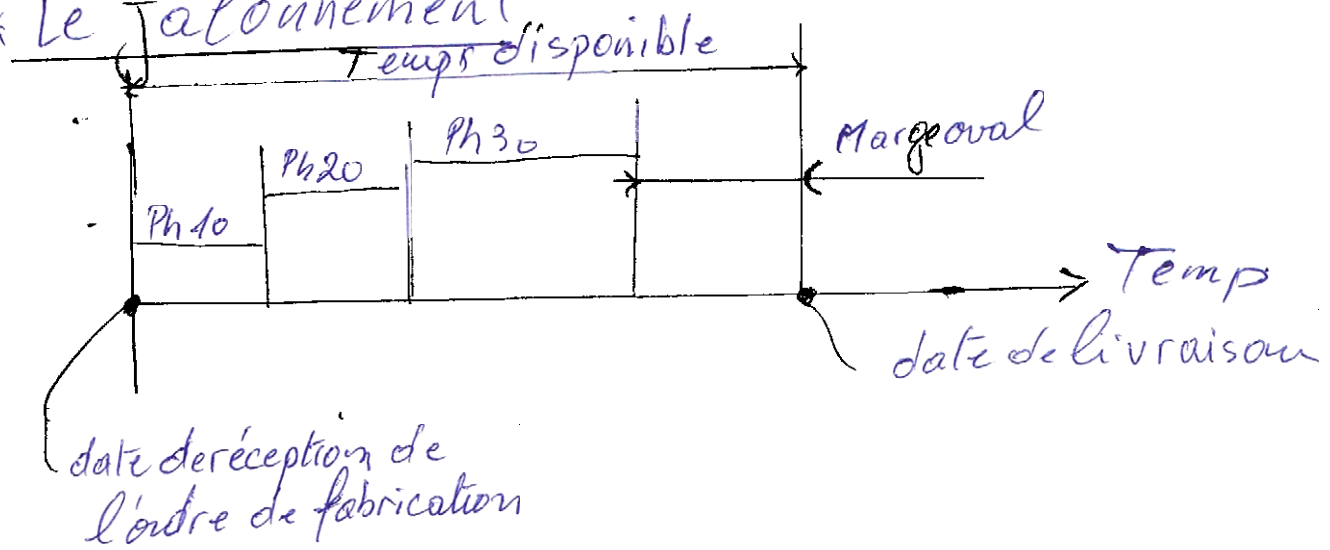 * Le Jalonnement
Temps disponible
Ph30
Marge aval
Ph20
Ph10
Temp
date de livraison
date de réception de
l'ordre de fabrication